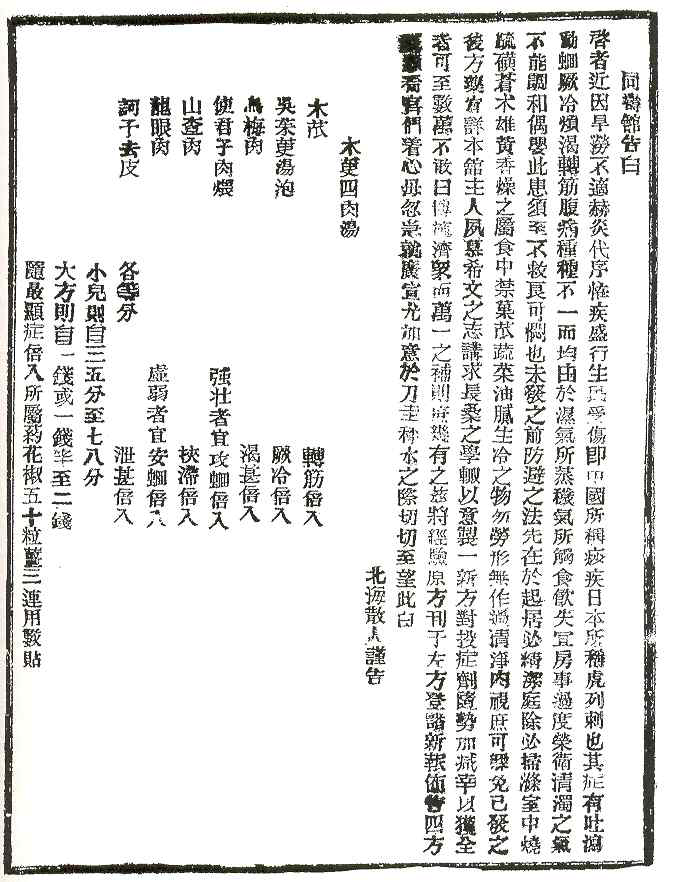 同壽館告白
啓者近因旱澇不適赫炎代序恠疾盛行生民受傷卽中國所稱痧疾日本所稱虎列剌也其症有吐瀉
動蛔厥冷煩渴轉筋腹痛種種不一而均由於濕氣所蒸穢氣所觸食飮失宜房事過度榮衛淸濁之氣
不能調和偶嬰此患須至不救良可憫也未發之前防避之法先在於起居必精潔庭除必掃滌室中燒
硫磺蒼朮雄黃香燥之屬食中禁菓苽蔬菜油膩生冷之物勿勞形無作過淸淨內視庶可繇免已發之
後方藥宜詳本館主人夙慕希文之志講求長桑之學輙以意製一新方對投症劑隨勢加减幸以獲全
者可至數萬不敢曰博施濟衆而萬一之補則庶幾有之玆將經驗原方刊于左方登諸新報佈告四方
看官們着心毋忽急就廣宣尤加意於刀圭秤水之際切切至望此白
北海散人謹告
木萸四肉湯
木苽 轉筋倍入
吳茱萸湯泡 厥冷倍入
烏梅肉 渴甚倍入
使君子肉煨 强壯者宜攻蛔倍入
山查肉 挾滯倍入
龍眼肉 虛弱者宜安蛔倍入
訶子去皮 泄甚倍入
各等分
小兒則自三五分至七八分
大方則自一錢或一錢半至二錢
隨最顯症倍入所屬葯花椒五十粒薑三連用數貼